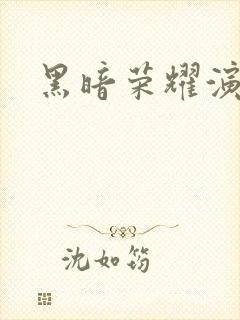 黑暗荣耀演
沈如筠